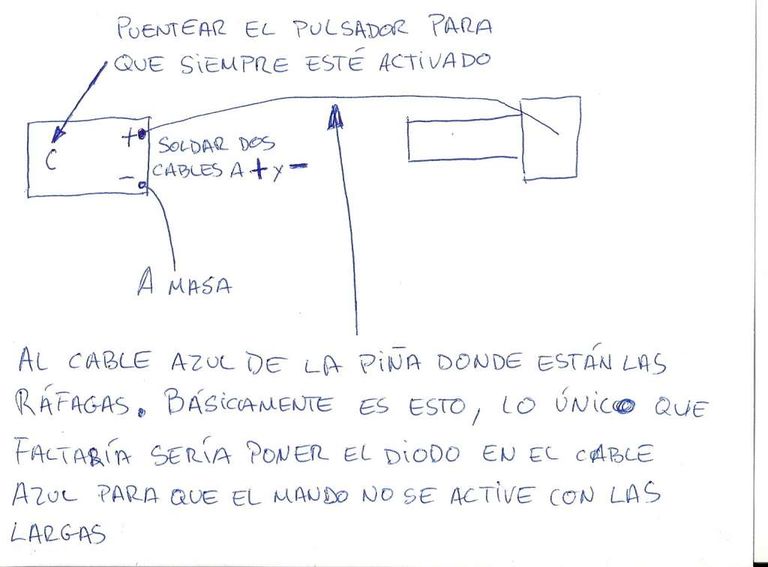 PUENTEAR EL PULSADOR PARA
QUE SIEMPRE ESTÉ ACTIVADO
+
C
SOLDAR DOS
CABLES A + Y -
-
A MASA
AL CABLE AZUL DE LA PIÑA DONDE ESTÁN LAS
RÁFAGAS. BÁSICAMENTE ES ESTO, LO ÚNICO QUE
FALTARÍA SERÍA PONER EL DIODO EN EL CABLE
AZUL PARA QUE EL MANDO NO SE ACTIVE CON LAS
LARGAS